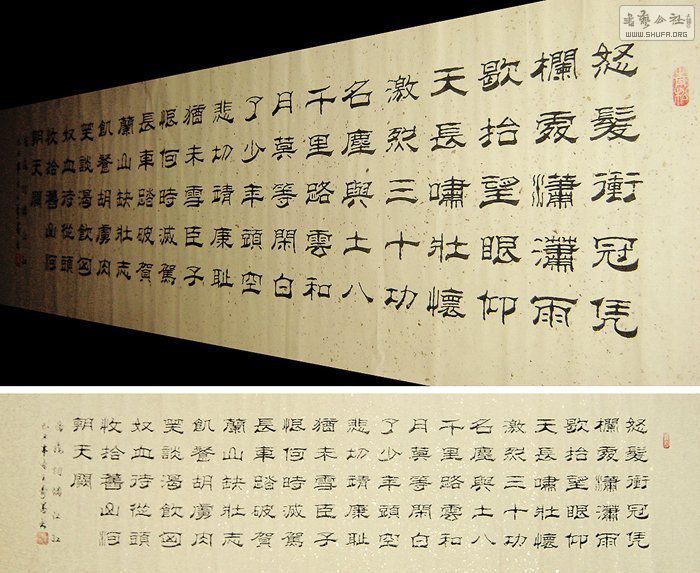 書藝公社
WWW.SHUFA.ORG
怒髮衝冠凭
欄處瀟瀟雨
歇抬望眼仰
天長嘯壯懷
激烈三十功
名塵與土八
千里路雲和
月莫等閑白
了少年頭空
悲切靖康耻
猶未雪臣子
恨何時滅駕
長車踏破賀
蘭山缺壯志
飢餐胡虜肉
笑談渴飲匈
奴血待從頭
收拾舊山河
朝天闕
怒髮衝冠凭
欄處瀟瀟雨
歇抬望眼仰
天長嘯壯懷
激烈三十功
名塵與土八
千里路雲和
月莫等閑白
了少年頭空
悲切靖康耻
猶未雪臣子
恨何時滅駕
長車踏破賀
蘭山缺壯志
飢餐胡虜肉
笑談渴飲匈
奴血待從頭
收拾舊山河
朝天闕
岳飛詞滿江紅